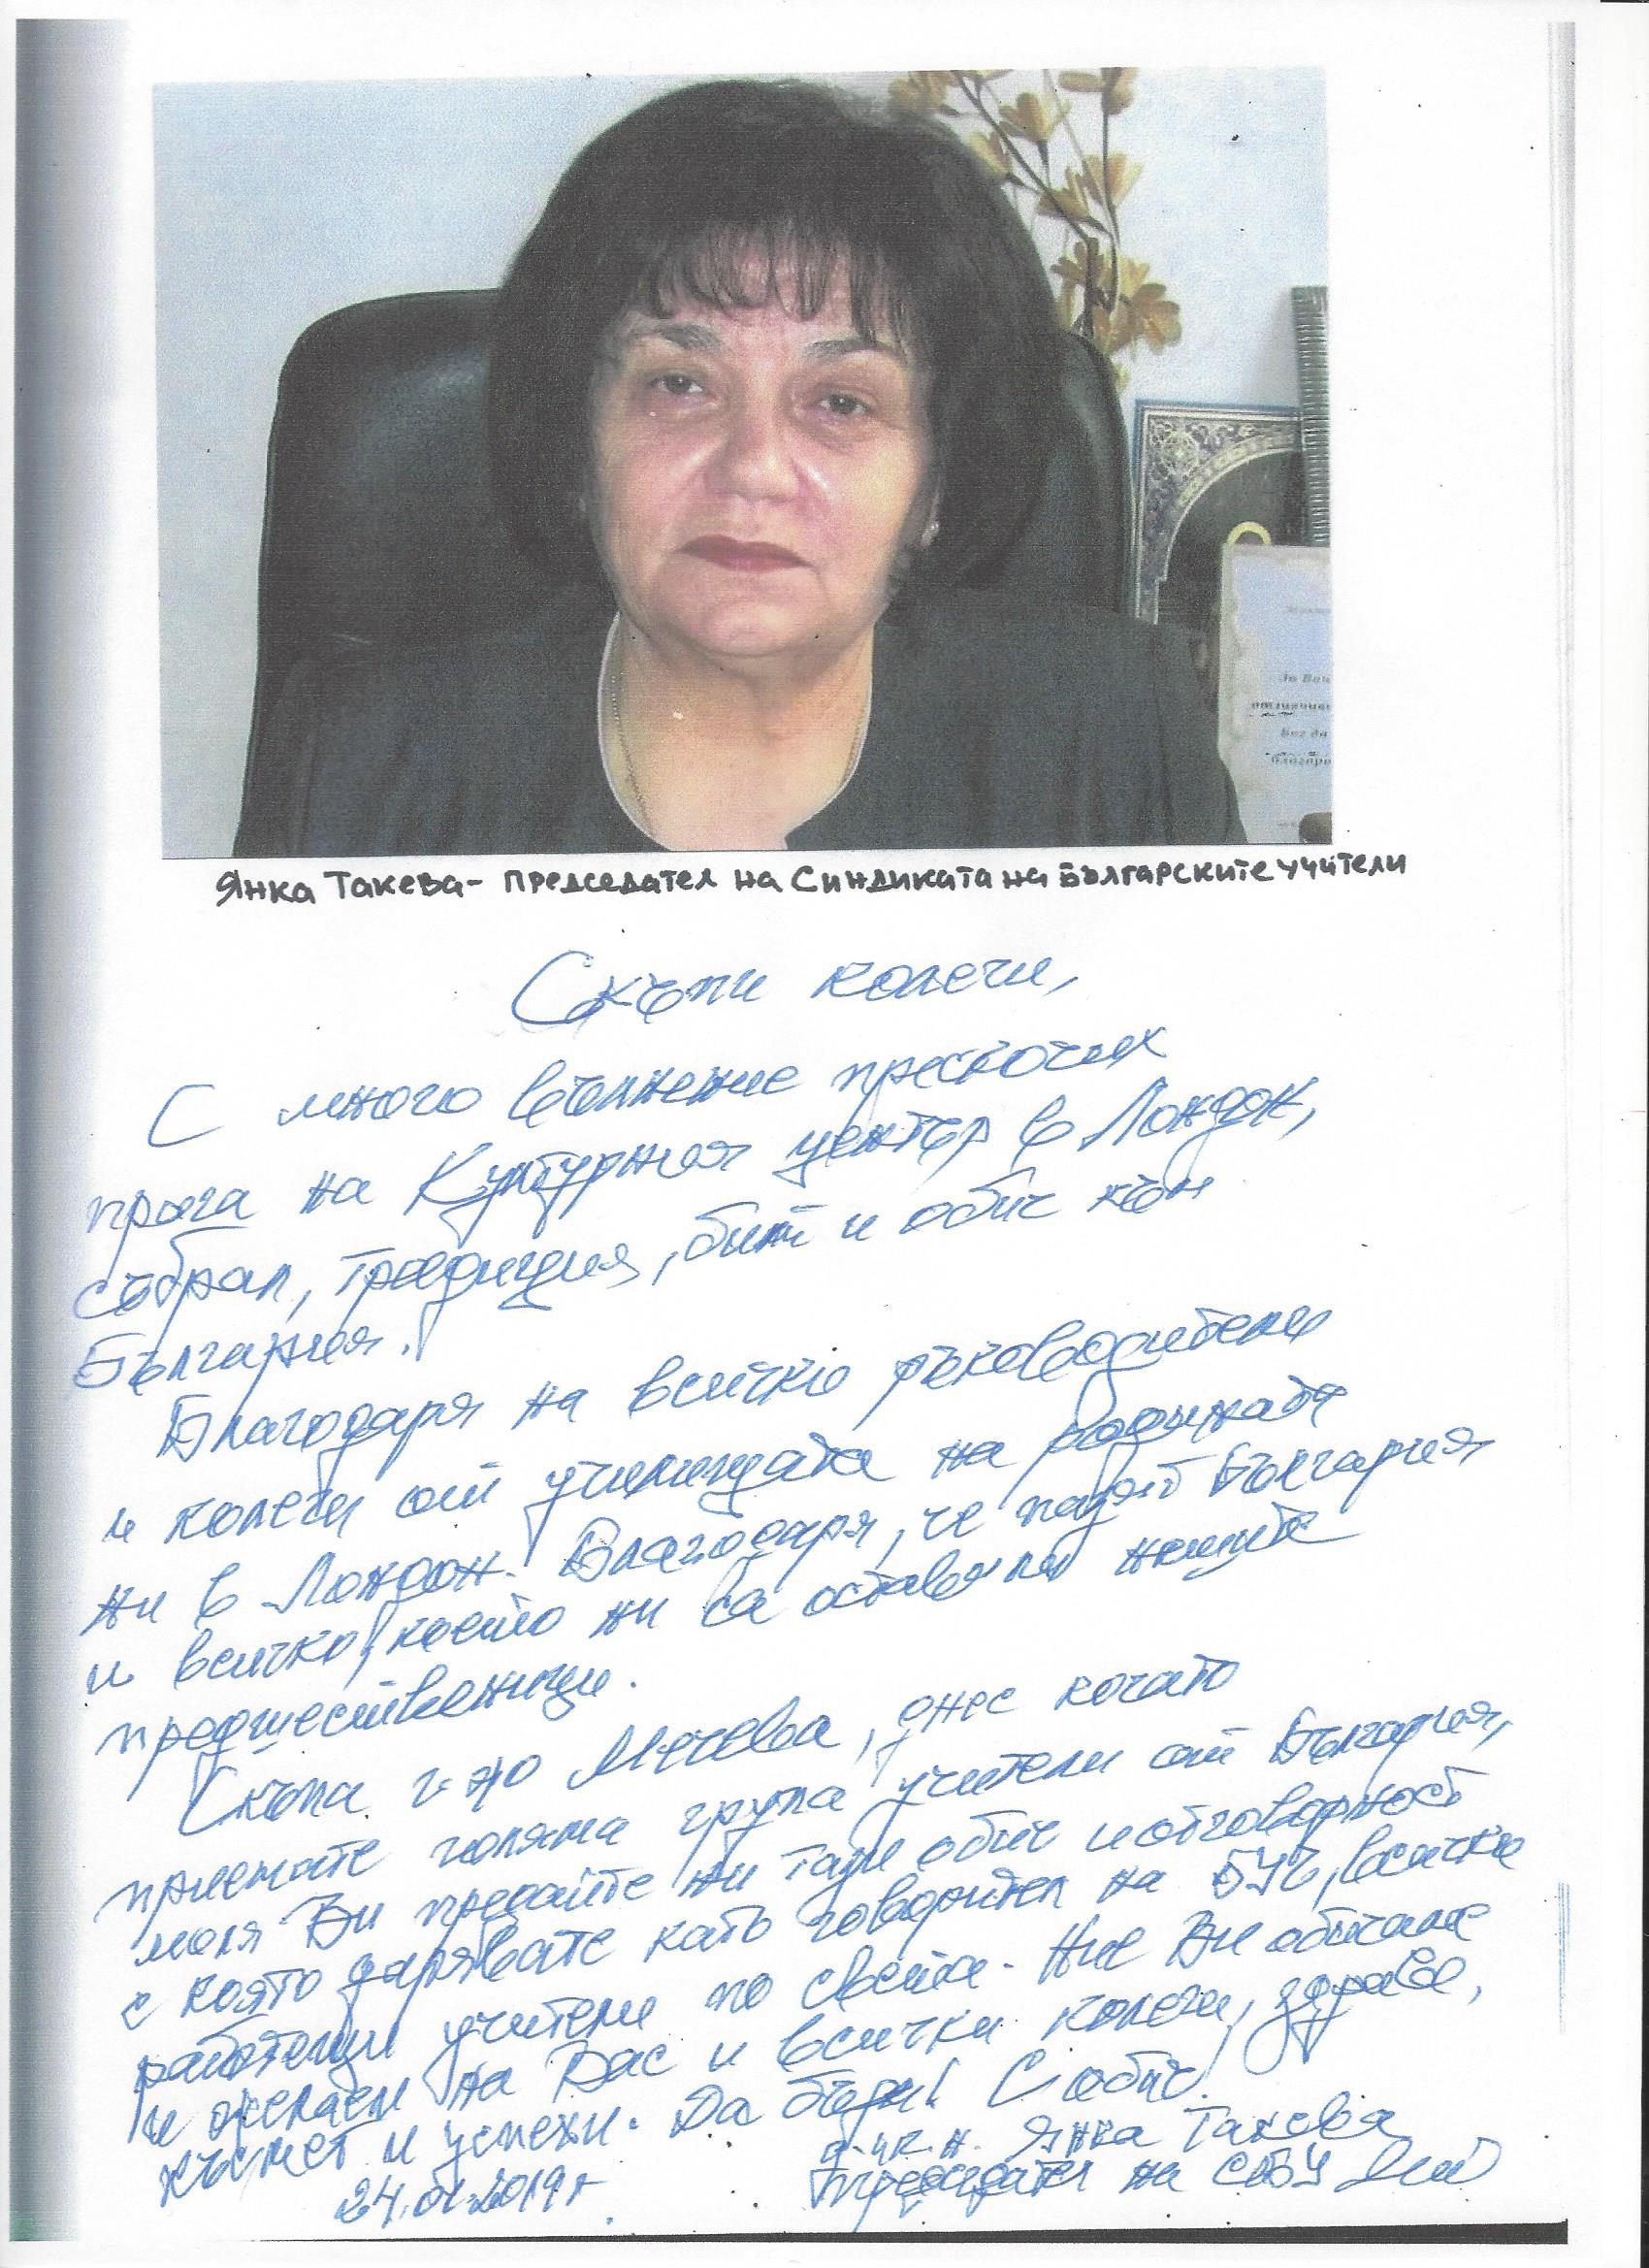 За Вас
Янка Такева - Председател на Синдиката на Българските учители
Скъпи колеги,
С много вълнение прескочих
прага на Културния център в Лондон,
събрал, традиция, бит и обич към
България.
Благодаря на всички ръководители
и колеги от училищата на родината
ни в Лондон. Благодаря, че пазят България
и всичко, което ни са оставили нашите
предшественици.
Скъпа г-жо Мечева, днес когато
приемате голяма група учители от България,
моля Ви предайте ни тази обич и отговорност
с която дарявате като говорител на БУЧ, всички
работещи учители по света. Ние Ви обичаме
и желаем на Вас и всички колеги, здраве,
късмет и успехи. Да бъде! С обич.
Янка Такева
24.01.2019 г.
Председател на СБУ